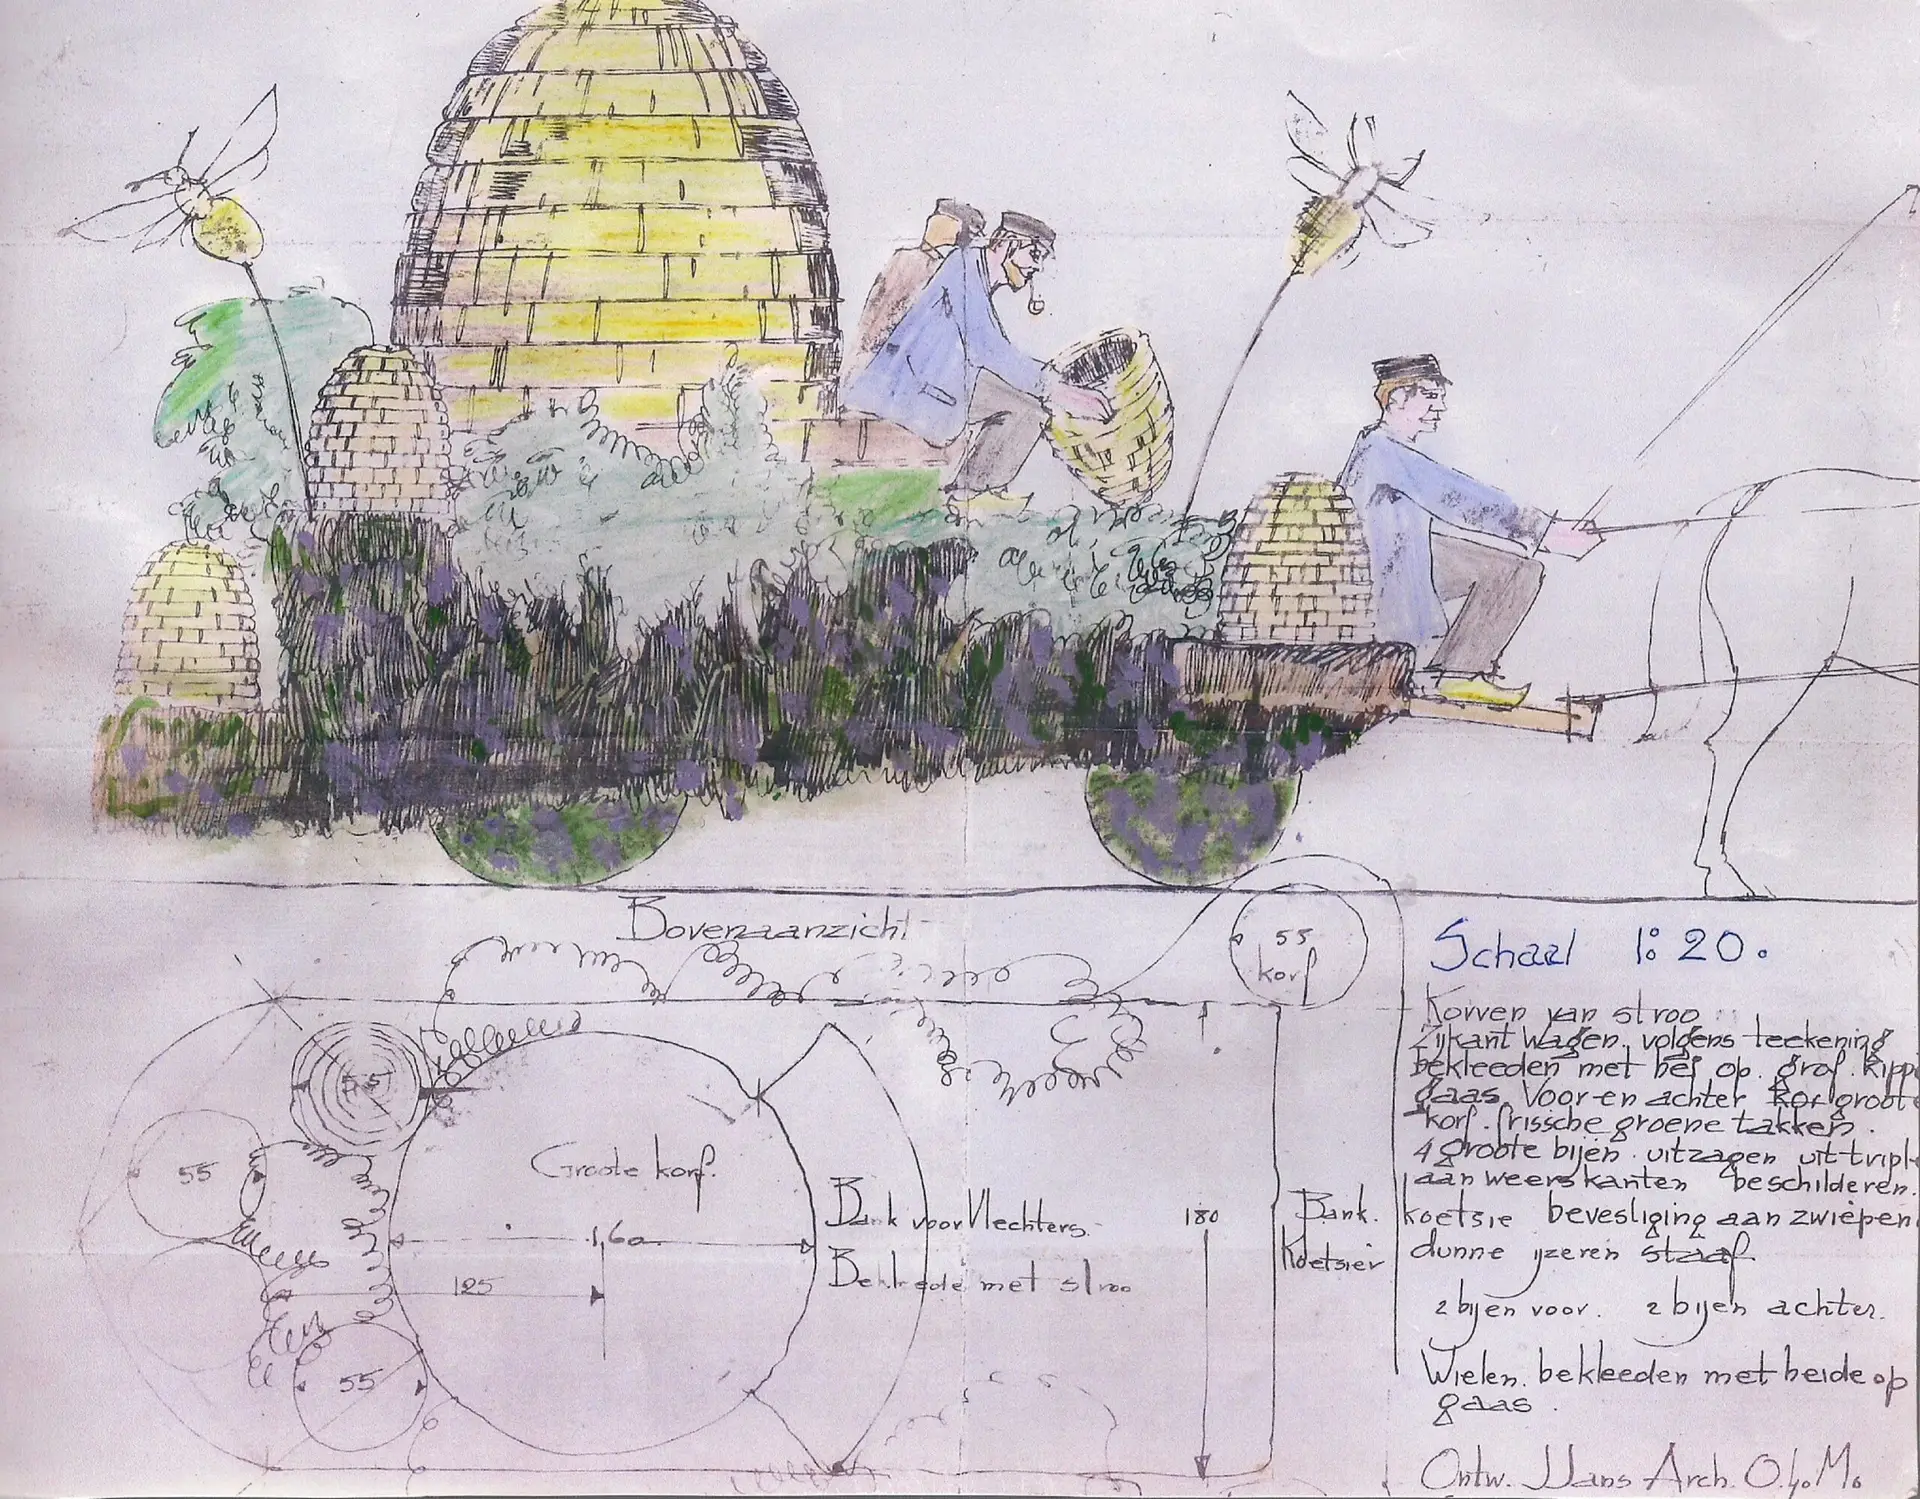 Bovenaanzicht
55
korf
55
Groote korf.
55
1,60
125
55
Bank voor Vlechters.
Bekleede met stroo
180
Bank.
Koetsier
Schaal 1:20.
Korven van stroo
Zijkant Wagen. volgens teekening
bekleeden met hei op. grof. kipp
gaas. Voor en achter groote
korf. frissche groene takken.
4 groote bijen. uitzagen uit tripl
aan weerskanten beschilderen.
koetsie bevestiging aan zwiepen
dunne ijzeren staaf.
2 bijen voor. 2 bijen achter.
Wielen. bekleeden met heide op
gaas.
Ontw. Arch. O.